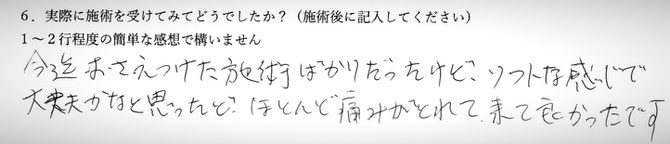 6．実際に施術を受けてみてどうでしたか？（施術後に記入してください）
1～2行程度の簡単な感想で構いません
今迄おさえつけた施術ばかりだったけど、ソフトな感じで
大丈夫かなと思ったど、ほとんど痛みがとれて、来て良かったです